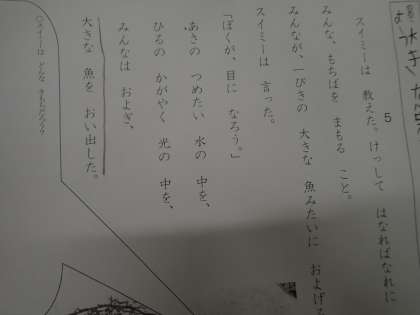 5
スイミーは 教えた。けっして はなればなれに
みんな、もちばを まもる こと。
みんなが、一ぴきの 大きな 魚みたいに およげる
スイミーは 言った。
「ぼくが、目に なろう。」
あさの つめたい 水の 中を、
ひるの かがやく 光の 中を、
みんなは およぎ、
大きな 魚を おい出した。
○スイミーは どんな きもちだろう?